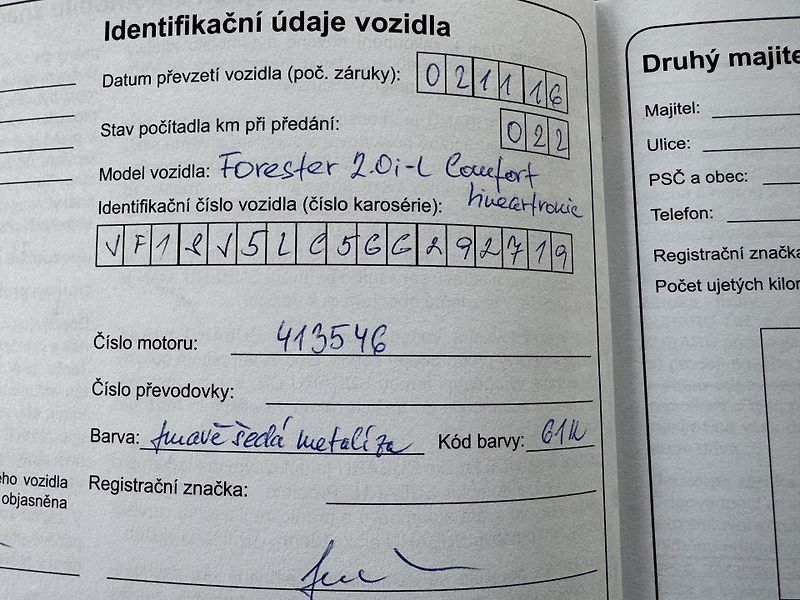 Identifikační údaje vozidla
Datum převzetí vozidla (poč. záruky): 021116
Stav počítadla km při předání: 022
Model vozidla: Forester 2.0i-L Comfort
Lineartronic
Identifikační číslo vozidla (číslo karosérie):
JF1SJ5LC5GG292719
Číslo motoru: 413546
Číslo převodovky:
Barva: tmavě šedá metalíza Kód barvy: 61K
ho vozidla
objasněna
Registrační značka:
Druhý majite
Majitel:
Ulice:
PSČ a obec:
Telefon:
Registrační značka
Počet ujetých kilon